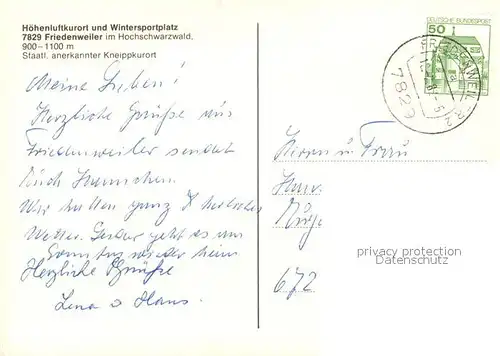 Höhenluftkurort und Wintersportplatz
7829 Friedenweiler im Hochschwarzwald,
900–1100 m
Staatl. anerkannter Kneippkurort
Meine Lieben!
Herzliche Grüße aus
Friedenweiler sendet
Euch Hannchen.
Wir hatten ganz herrliches
Wetter. Leider geht es am
Sonntag wieder heim
Herzliche Grüße
Lena u Hans.
50
DEUTSCHE BUNDESPOST
7829
Herrn u Frau
672
privacy protection
Datenschutz